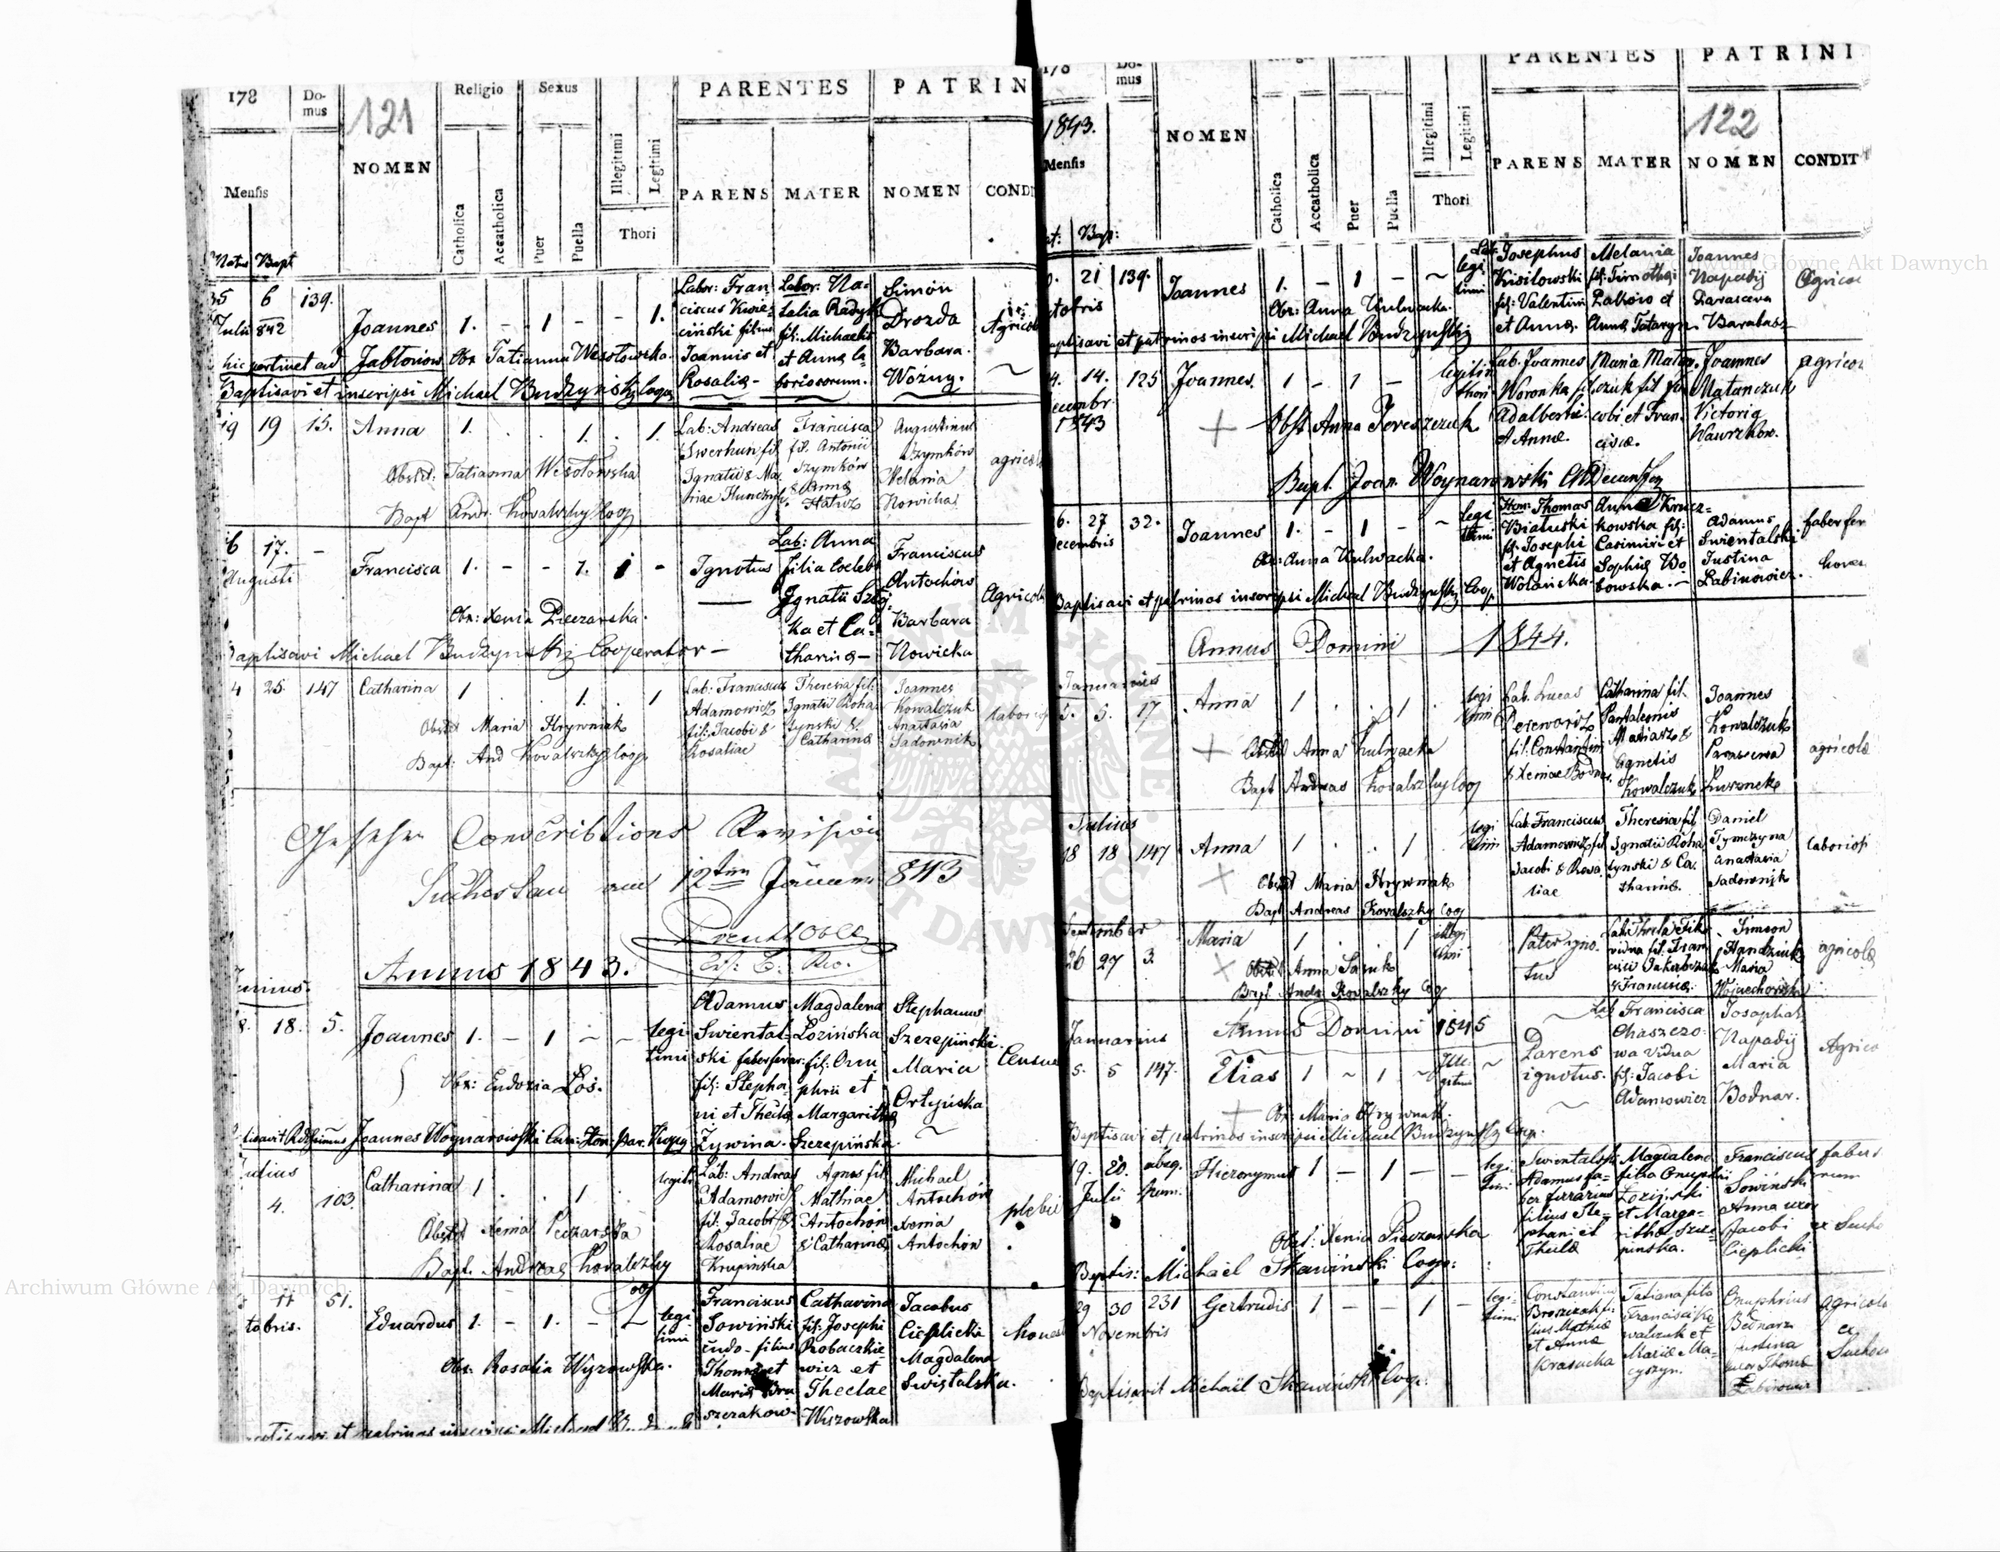 178
Do-
mus
121
NOMEN
Religio
Sexus
Catholica
Accatholica
Puer
Puella
Illegitimi
Legitimi
Thori
PARENTES
PATRIN
PARENS
MATER
NOMEN
COND
Mensis
Natus Bapt
5 6 139. Joannes 1. - 1 - - 1.
Julii 842
Labor: Fran
ciscus Kwie
ciński filius
Joannis et
Rosaliæ -
Labor: Na-
talia Radyk
fil: Michaelis
et Anna la-
boriosorum.
Simon
Drozda
Barbara
Woźny.
Agricol
hic pertinet ad Jabłonow Obs: Tatianna Wesołowska.
Baptisavi et inscripsi Michael Budzyński Coop
19 19 15. Anna 1. 1. 1.
Lab: Andreas
Swerhun fil
Ignatii & Ma
riae Hunczyk
Francisca
fil. Antonii
Szymków
& Anna
Augustinus
Szymków
Melania
Nowicka
agricol
Obstet: Tatianna Wesołowska
Bapt Andr. Kowalszky Coop
6 17. - Francisca 1. - - 1. 1 -
Augusti
Ignotus
Lab: Anna
filia Coeleb
Ignatii
ka et Ca-
tharinæ -
Franciscus
Antochów
Barbara
Nowicka
Agricol
Obs: Xenia Pieczarska.
Baptisavi Michael Budzyński Cooperator -
4 25 147 Catharina 1 1. 1
Lab: Franciscus
Adamowicz
fil: Jacobi &
Rosaliae
Theresia fil:
Ignatii Roha
tynski &
Catharina
Joannes
Kowalczuk
Anastasia
Sadownik
laborio
Obstet Maria Hrywniak
Bapt: And Kowalszky Coop
Gesehen Conscriptions Revision
Suchostau am 12ten Jänner 843
Annus 1843.
Junius.
8. 18. 5. Joannes 1. - 1 - - legi
timi
Adamus
Swiental-
ski faber ferar:
fil: Stepha
ni et Theklæ
Żywina.
Magdalena
Łozińska
fil: Onu
phrii et
Margaritha
Szczepińska.
Stephanus
Szczepiński.
Maria
Ortyńska
Census
Obs: Eudoxia Łoś.
Joannes Woynarowski
Julius
4. 103. Catharina 1 1 legiti
Lab: Andreas
Adamowicz
fil: Jacobi &
Rosaliae
Krupińska
Agnes fil
Mathiae
Antochów
& Catharinæ
Michael
Antochów
Xenia
Antochów
plebei
Obstet Xenia Pieczarska
Bapt. Andreas Kowalszky
Coop
11 51. Eduardus 1. - 1. - - legi
timi
tobris.
Franciscus
Sowiński
filius
Thomæ et
Mariæ
Catharina
fil: Josephi
Robaczkie-
wicz et
Theclae
Wyszowska
Jacobus
Cieplicki
Magdalena
Świętalska.
honest
Obs. Rosalia Wyzowska.
Baptisavi et patrinos inscripsi Michael
178
Do-
mus
1843.
Mensis
Nat: Bap:
NOMEN
Catholica
Accatholica
Puer
Puella
Illegitimi
Legitimi
Thori
PARENTES
PATRINI
122
PARENS
MATER
NOMEN
CONDIT
21 139. Joannes 1. - 1 - ~ legi
timi
ctobris
Josephus
Kisilowski
fil: Valentini
et Annæ.
Melania
fil: Timothei
Zaków et
Annæ Tataryn
Joannes
Napadij
Parasceva
Barabasz
Agricol
Obs: Anna Kulwacka.
Baptisavi et patrinos inscripsi Michael Budzyński
4. 14. 125 Joannes. 1 - 1 - legitim
thori
Decembr
1843
Lab. Joannes
Woronka fil
Adalberti
et Annæ.
Maria Matań
czuk fil Ja
cobi et Fran
ciscæ.
Joannes
Matanczuk
Victoria
Wawrzków.
agricol
Obst Anna Tereszczuk
Bapt. Joan. Woynarowski
6. 27 32. Joannes 1. - 1 - ~ legi
timi
Decembris
Hon: Thomas
Białuski
fil: Josephi
et Agnetis
Wolańska.
Anna Krucz-
kowska fil:
Casimiri et
Sophiæ Bo
bowska. -
Adamus
Swientalski
Justina
Łabinowicz.
faber fer
hones
Obs: Anna Kulwacka.
Baptisavi et patrinos inscripsi Michael Budzyński Coop
Annus Domini 1844.
Januarius
5. 5. 17 Anna 1 . . 1 . legi
timi
Lab. Lucas
Derewacz
fil: Constantini
& Xeniae Bodnar
Catharina fil.
Pantaleonis
Matiasz &
Agnetis
Kowalczuk
Joannes
Kowalczuk
Parascewa
agricolæ
Obstet Anna Kulwacka
Bapt Andreas Kowalszky Coop
Julius
18 18 147 Anna 1 . . 1 legi
timi
Lab: Franciscus
Adamowicz fil
Jacobi & Rosa
liae
Theresia fil
Ignatii Roha
tynski & Ca
tharinæ.
Daniel
Tymczyna
Anastasia
Sadownik
laborios
Obstet Maria Hrywniak
Bapt Andreas Kowalszky Coop
September
26 27 3. Maria 1 . . 1 illegi
timi
Pater igno
tus
vidua fil: Fran
cisci Jakubczak
& Franciscæ
Simeon
Handziuk
Maria
Wojciechowska
agricolæ
Obstet Anna Sasnik
Bapt Andr Kowalszky Coop
Annus Domini 1845
Januarius
5. 5 147. Elias 1 ~ 1 ~ Ille
gitimi ~
Parens
ignotus.
Lab Francisca
Chaszczo-
wa vidua
fil: Jacobi
Adamowicz
Josaphat
Napadij
Maria
Bodnar.
Agrico
Obs: Maria Hrywniak.
Baptisavi et patrinos inscripsi Michael Budzyński Coop:
19. 20. abeq. Hieronymus 1 - 1 - - legi
timi
Julii Num.
Swientalski
Adamus fa-
ber ferrarius
filius Ste-
phani et
Theklæ
Magdalena
filia Onuphrii
Łozijski
et Marga-
ritha Szcze
pinska.
Franciscus
Sowiński
Anna uxor
Jacobi
Cieplicki
fabers
rum
ex Sucho
Obst: Xenia Pieczarska
Baptis: Michael Skawiński Coop:
29 30 231 Gertrudis 1 - - 1 - legi-
timi
Novembris
Constantinus
fi-
lius Mathiæ
et Annæ
Krasucka
Tatiana filia
Francisci Ko
walczuk et
Mariæ Ma-
cyszyn.
Onuphrius
Bednarz
Justina
uxor Thomæ
Łabinowicz
agricolæ
ex
Suchos
Baptisavit Michaël Skawiński Coop:
Archiwum Główne Akt Dawnych
Archiwum Główne Akt Dawnych